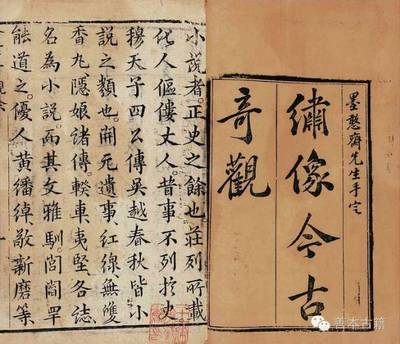 墨憨齋先生手定
繡像今古
奇觀
小說者。正史之餘也。莊列所載
化人傴僂丈人。昔事不列於史。
穆天子四公傳吳越春秋皆小
說之類也。開元遺事。紅線無雙
香丸隱娘諸傳。睽車夷堅各志。
名為小說。而其文雅馴。閭閻罕
能道之。優人黃繙綽敬新磨等
善本古籍